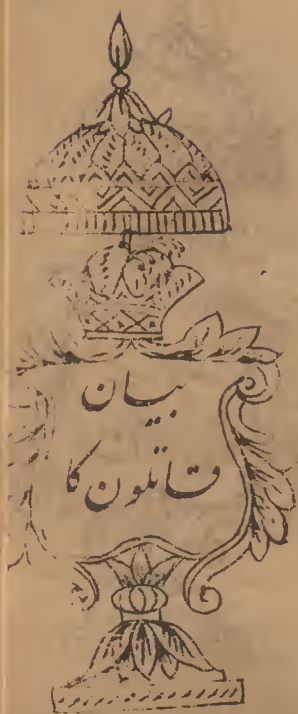 بیان
قاتلون کا